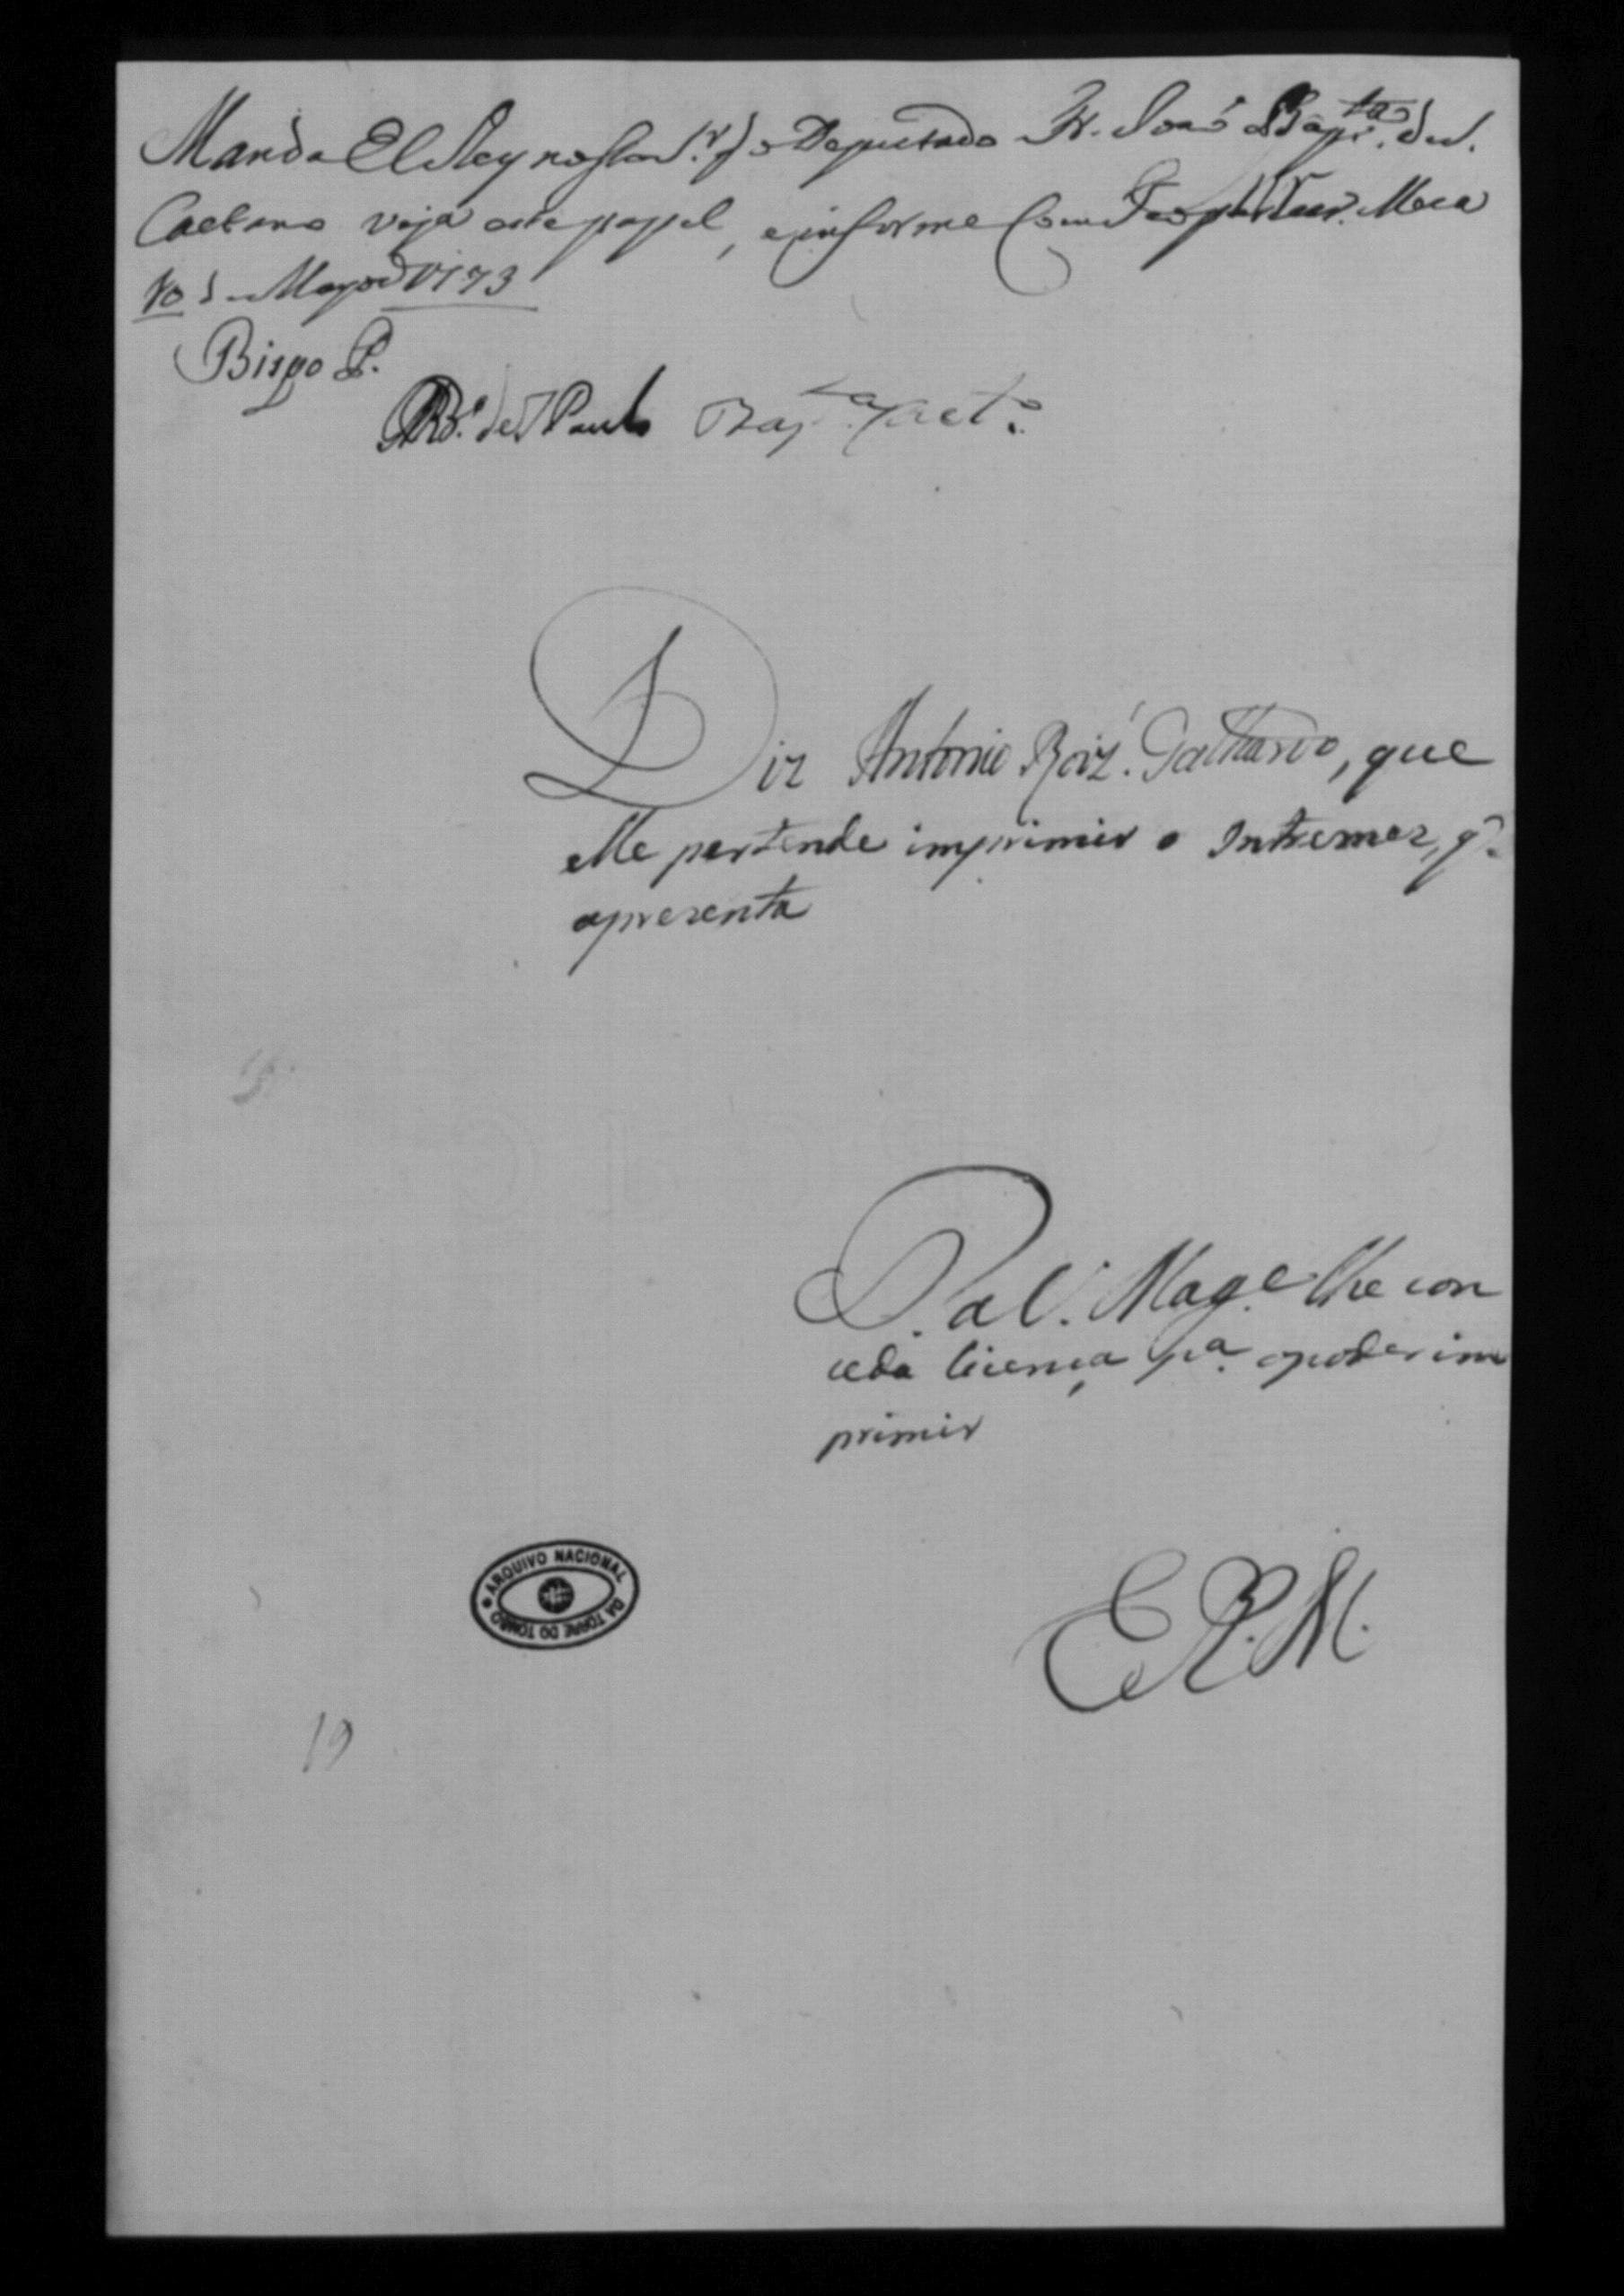 Manda El Rey nosso S.r q o Deputado Fr. Joaõ Bap.ta de S.
Caetano veja este papel, e informe com Meza
10 de Mayo d 1773
Bispo P.
Bap.ta Caet.o
Diz Antonio Roiz. Galhardo, que
elle pertende imprimir o Intremez, q.
aprezenta
P. a V. Mag.e lhe con
ceda licença p.a o poder im
primir
E R. M.
ARQUIVO NACIONAL DA TORRE DO TOMBO
19